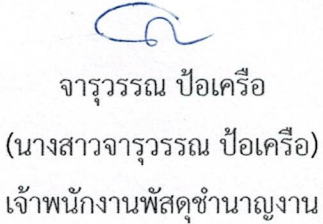 จารุวรรณ ป้อเครือ
(นางสาวจารุวรรณ ป้อเครือ)
เจ้าพนักงานพัสดุชำนาญงาน